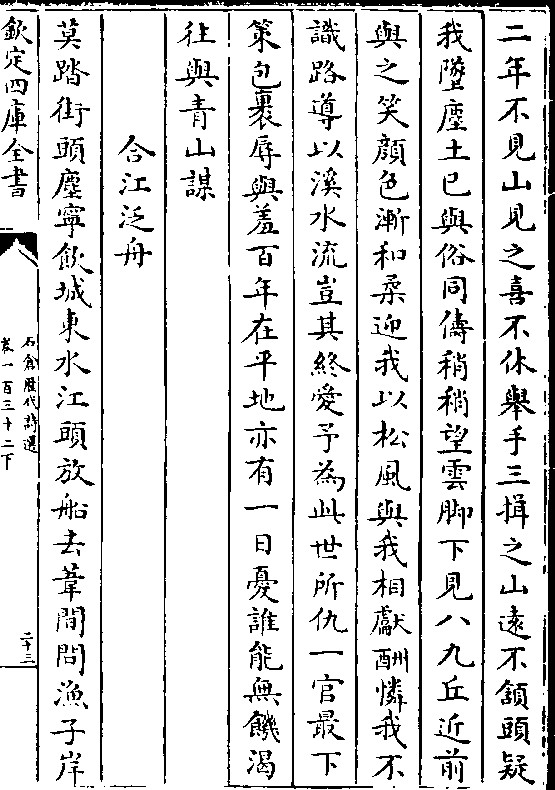 二年不見山見之喜不休舉手三揖之山遠不頷頭疑
我墮塵土已與俗同儔稍稍望雲脚下見八九丘近前
與之笑顔色漸和柔迎我以松風與我相獻酬憐我不
識路導以溪水流豈其終愛予為此世所仇一官最下
策包裹辱與羞百年在平地亦有一日憂誰能無饑渴
往與青山謀
合江泛舟
莫踏街頭塵寧飲城東水江頭放船去葦間問漁子岸
欽定四庫全書
石倉歷代詩選
卷一百三十二下
二十三